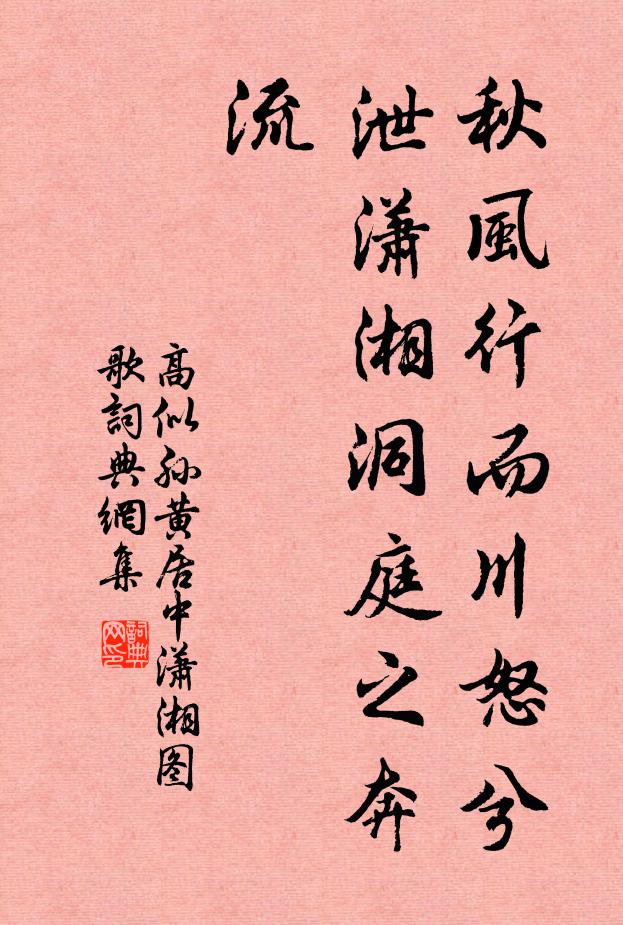 秋風行而川怒兮
泄瀟湘洞庭之奔
流
高似孙黄居中瀟湘图
歌詞典網集
詞典
网印